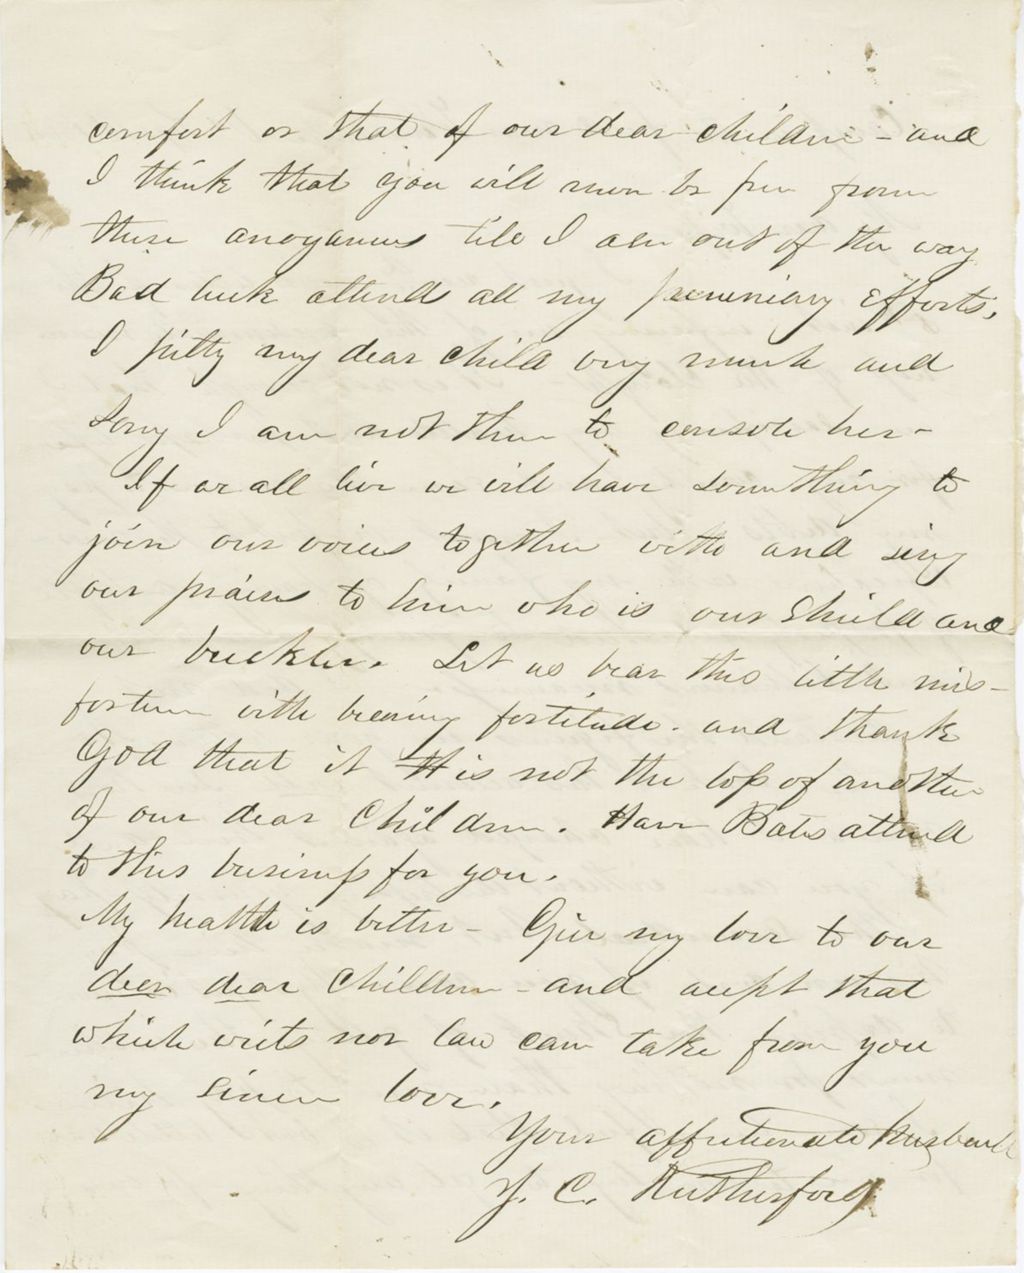 comfort or that of our dear children - and
I think that you will never be free from
these anoyances till I am out of the way
Bad luck attends all my pecuniary efforts.
I pitty my dear child very much and
sory I am not there to console her -
If we all live we will have something to
join our voices together with and sing
our praises to him who is our Shield and
our buckler. Let us bear this little mis-
fortune with fortitude. and thank
God that it is not the loss of another
of our dear Children. Have Bates attend
to this business for you.
My health is better - Give my love to our
dear dear children - and accept that
which writs nor law can take from you
my sincere love.
Your affectionate husband
J. C. Rutherford